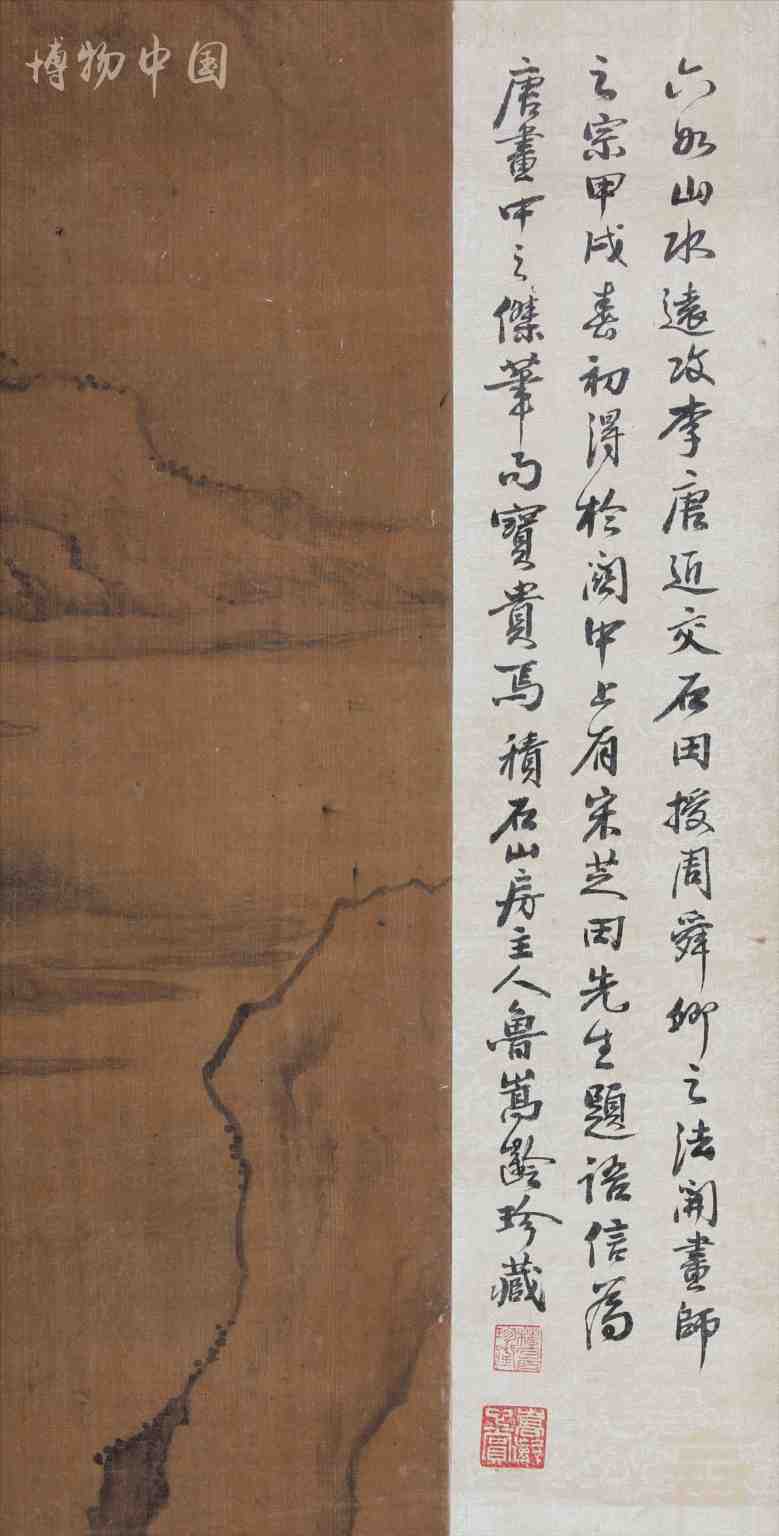 博物中国
六如山水遠攻李唐近交石田授周舜卿之法開畫師
之宗甲戌春初得於閩中上有宋芝田先生題語信爲
唐畫中之傑筆而寶貴焉積石山房主人魯嵩齡珍藏